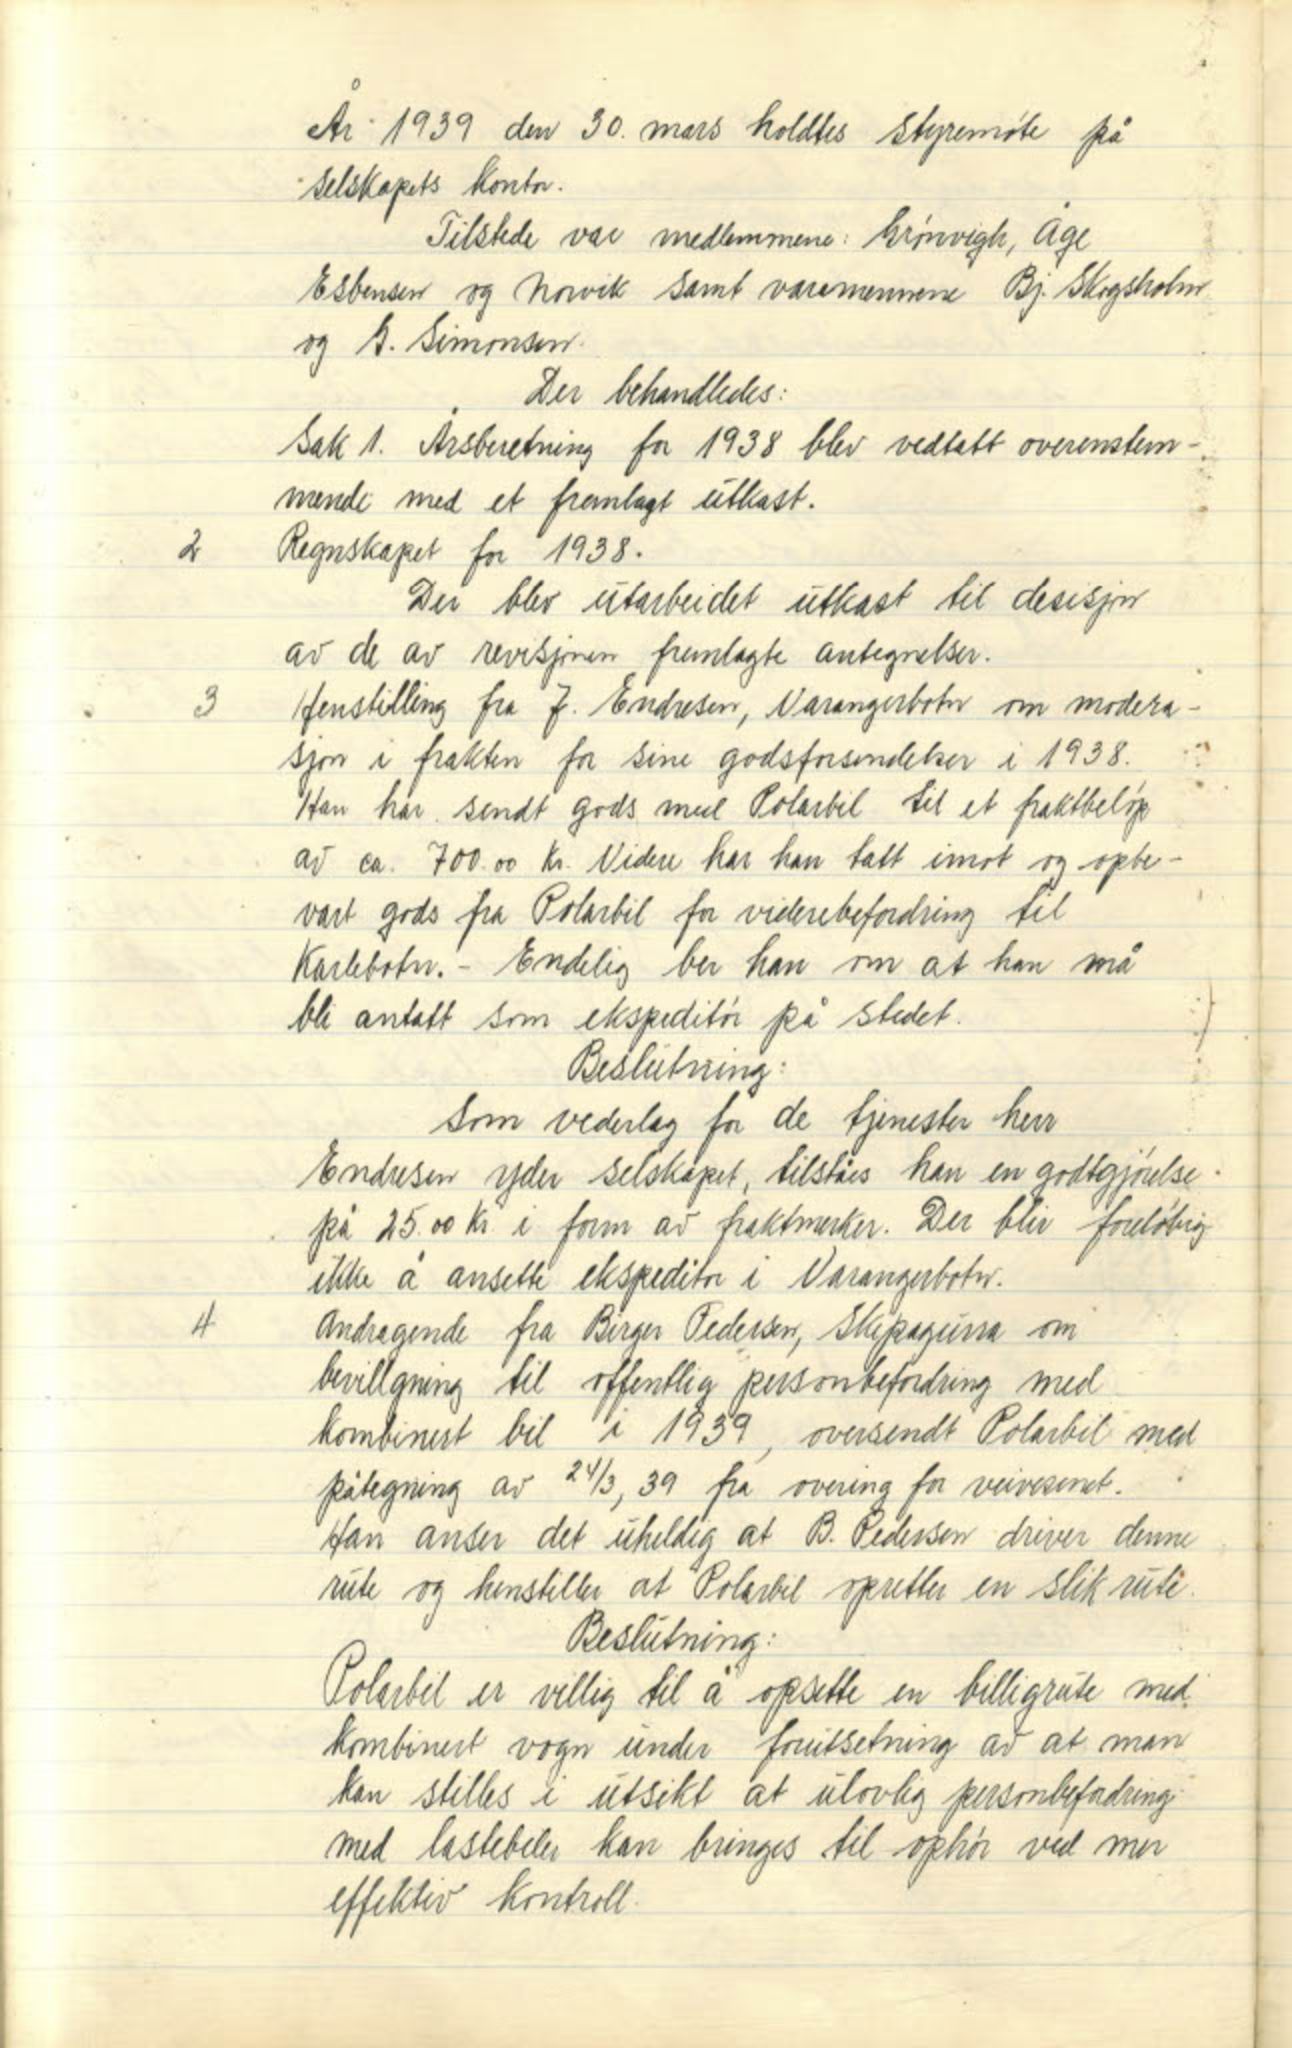 År 1939 den 30. mars holdtes styremøte på
selskapets kontor.
Tilstede var medlemmene: Grønvigh, Åge
Esbensen og Norvik samt varamennene Bj. Skogsholm
og G. Simonsen.
Der behandledes:
Sak 1. Årsberetning for 1938 blev vedtatt overenstem-
mende med et fremlagt utkast.
2 Regnskapet for 1938.
Der blev utarbeidet utkast til desisjon
av de av revisjonen fremlagte antegnelser.
3 Henstilling fra J. Endresen, Varangerbotn om modera-
sjon i frakten for sine godsforsendelser i 1938.
Han har sendt gods med Polarbil til et fraktbeløp
av ca. 700.00 Kr. Videre har han tatt imot og opbe-
vart gods fra Polarbil for viderebefordring til
Karlebotn. - Endelig ber han om at han må
bli antatt som ekspeditør på stedet.
Beslutning:
Som vederlag for de tjenester herr
Endresen yder selskapet, tilståes han en godtgjørelse
på 25.00 Kr i form av fraktmerker. Der blir foreløbig
ikke å ansette ekspeditør i Varangerbotn.
4 Andragende fra Birger Pedersen, Skipagurra om
bevillgning til offentlig personbefordring med
kombinert bil i 1939, oversendt Polarbil med
påtegning av 24/3, 39 fra overing for veivesenet.
Han anser det uheldig at B. Pedersen driver denne
rute og henstiller at Polarbil opretter en slik rute.
Beslutning:
Polarbil er villig til å opsette en billigrute med
kombinert vogn under forutsetning av at man
kan stilles i utsikt at ulovlig personbefordring
med lastebiler kan bringes til ophør ved mer
effektiv kontroll.